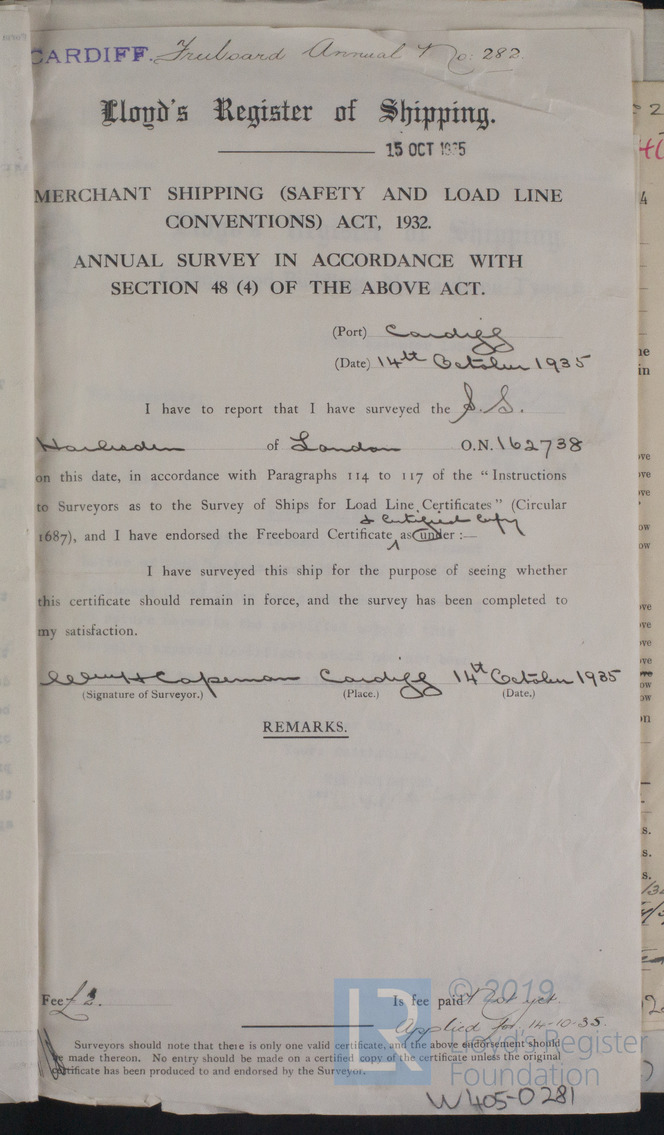 CARDIFF. Freeboard Annual No: 282.
Lloyd's Register of Shipping.
15 OCT 1935
MERCHANT SHIPPING (SAFETY AND LOAD LINE
CONVENTIONS) ACT, 1932.
ANNUAL SURVEY IN ACCORDANCE WITH
SECTION 48 (4) OF THE ABOVE ACT.
(Port) Cardiff
(Date) 14th October 1935
I have to report that I have surveyed the S.S.
Harlesden of London O.N. 162738
on this date, in accordance with Paragraphs 114 to 117 of the "Instructions
to Surveyors as to the Survey of Ships for Load Line Certificates" (Circular
& Certified Copy
1687), and I have endorsed the Freeboard Certificate as under :—
I have surveyed this ship for the purpose of seeing whether
this certificate should remain in force, and the survey has been completed to
my satisfaction.
Capeman Cardiff 14th October 1935
(Signature of Surveyor.) (Place.) (Date.)
REMARKS.
Fee £2. Is fee paid? Not yet.
Applied for 14-10-35.
Surveyors should note that there is only one valid certificate, and the above endorsement should
be made thereon. No entry should be made on a certified copy of the certificate unless the original
certificate has been produced to and endorsed by the Surveyor.
LR
© 2019
Lloyd's Register
Foundation
W405-0281